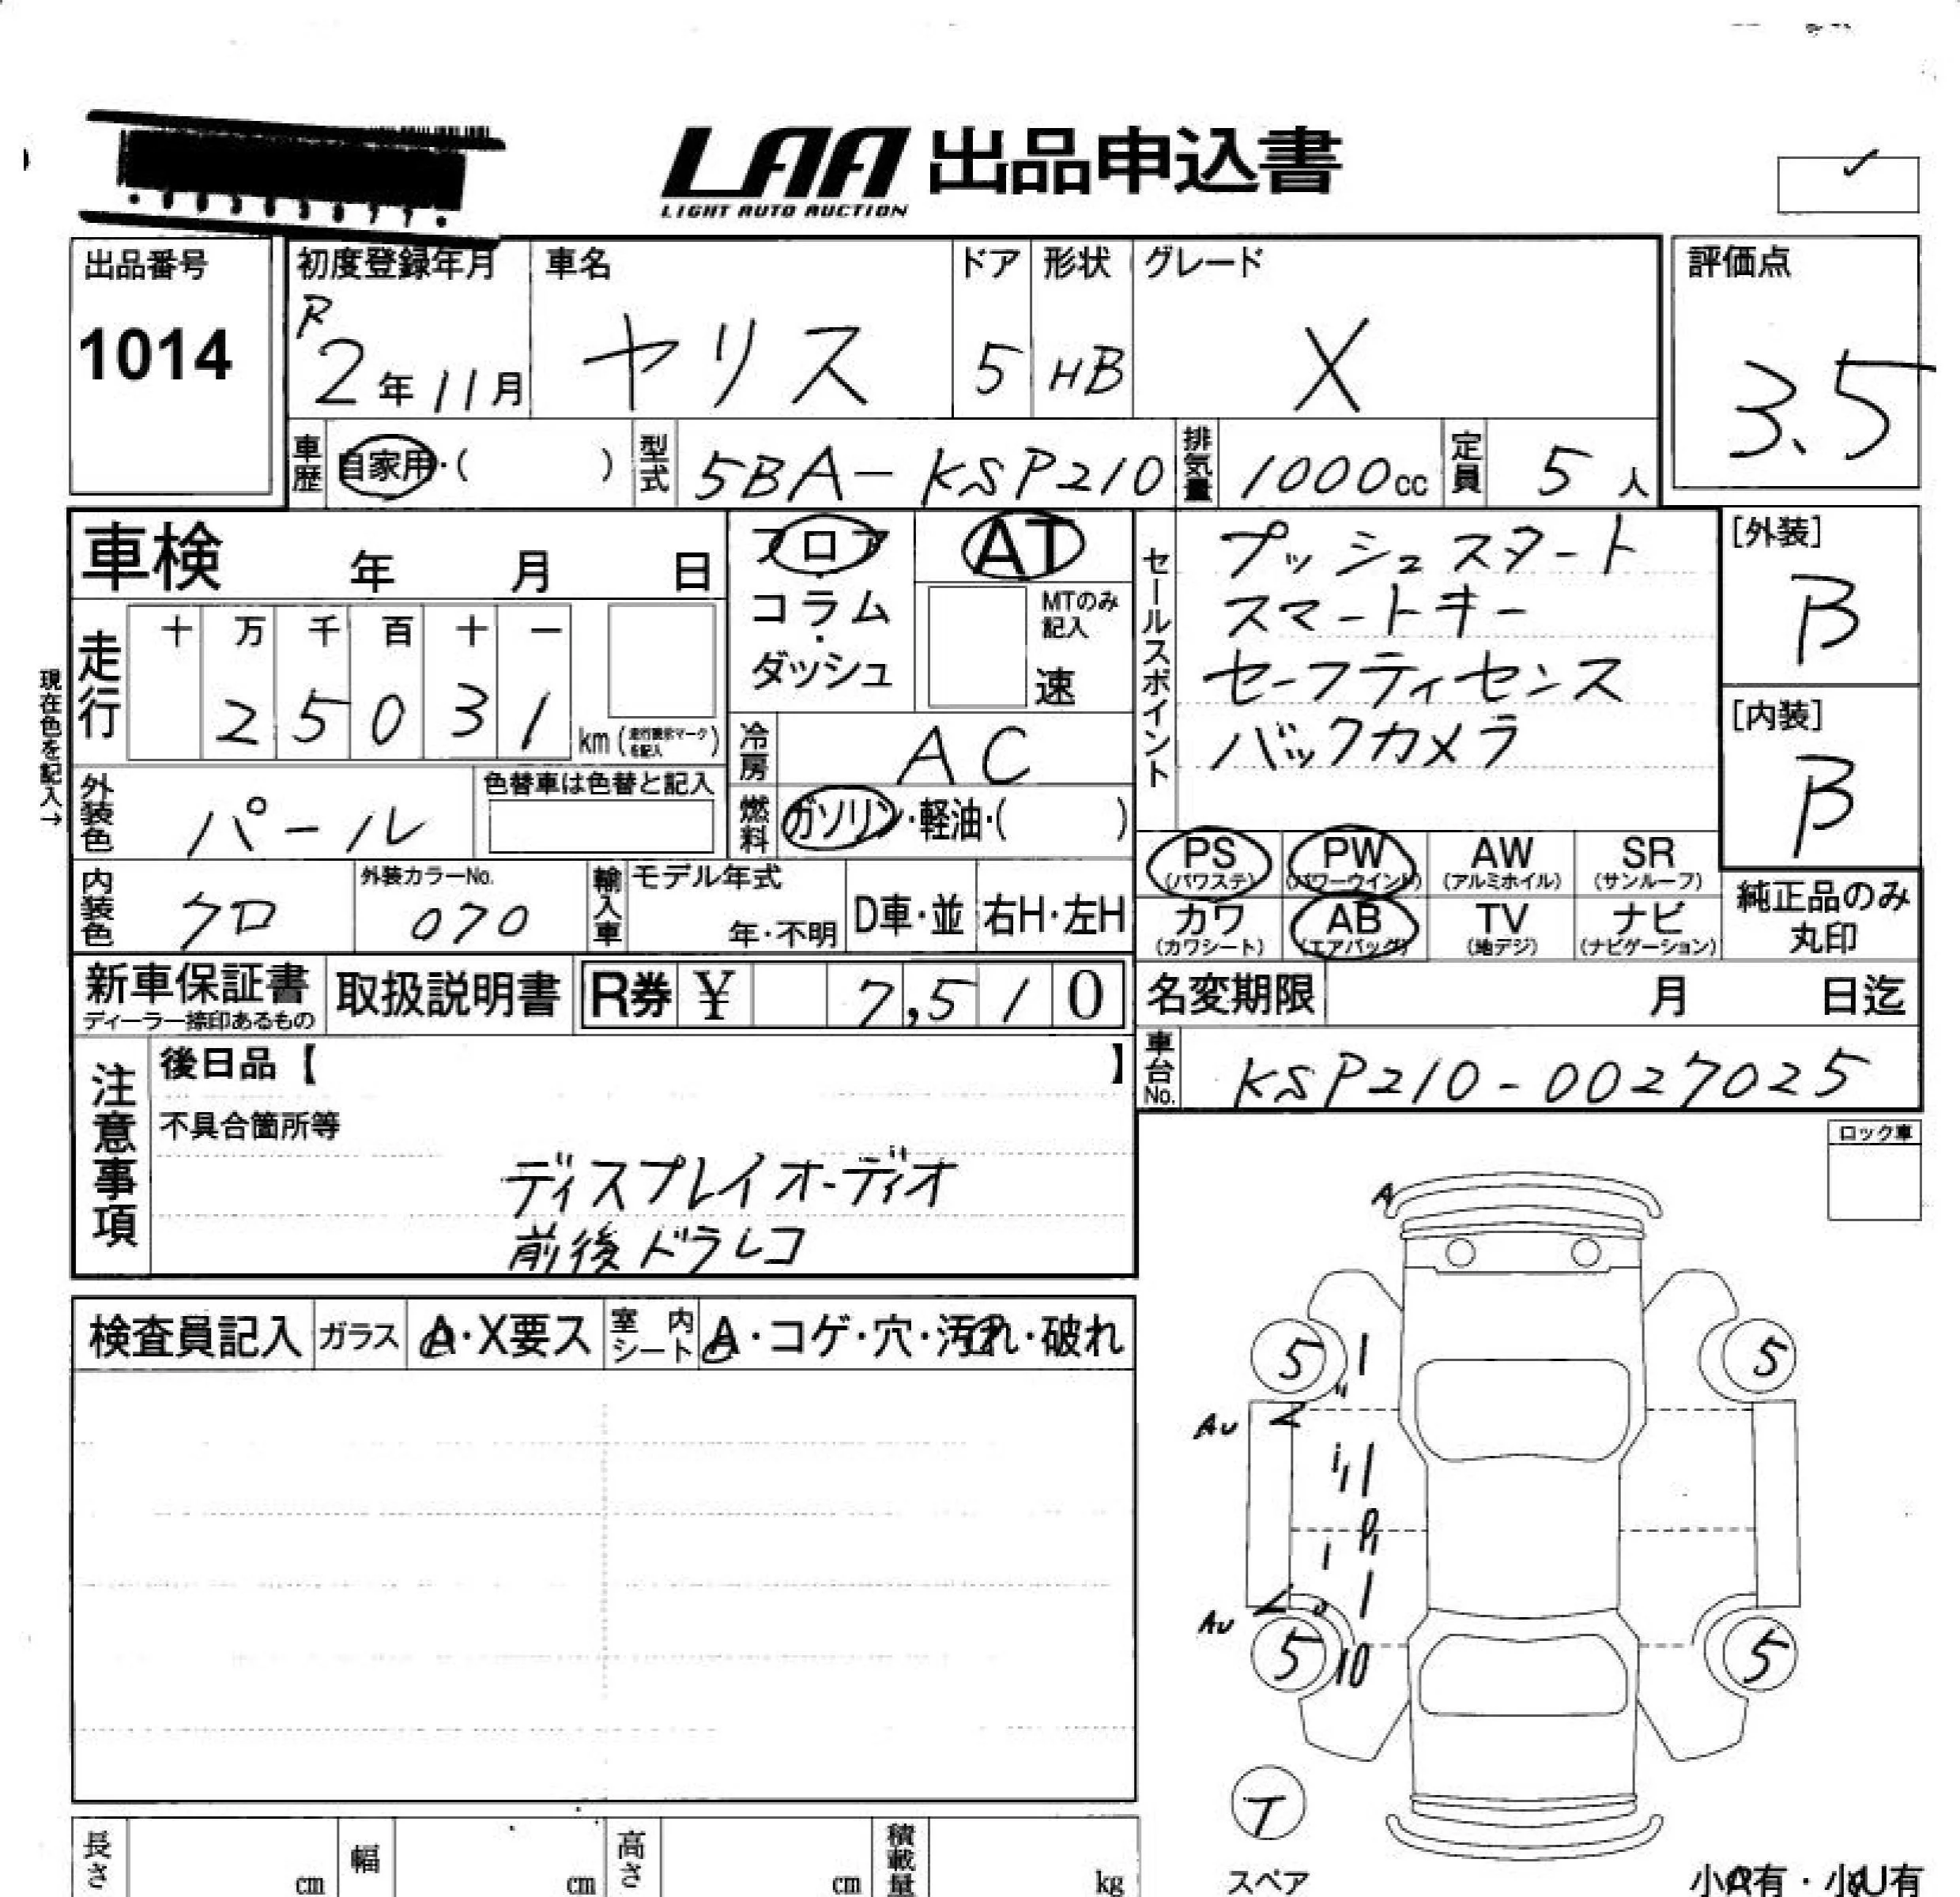 LAA 出品申込書
LIGHT AUTO AUCTION
出品番号
1014
初度登録年月
R
2年11月
車名
ヤリス
ドア
5
形状
HB
グレード
X
評価点
3.5
車歴
自家用・( )
型式
5BA-KSP210
排気量
1000cc
定員
5人
車検 年 月 日
現在色を記入→
走行
十 万 千 百 十 一
2 5 0 3 1
km (走行表示マークを記入)
フロア
・
コラム
・
ダッシュ
AT
MTのみ
記入
速
冷房
AC
燃料
ガソリン・軽油・( )
セールスポイント
プッシュスタート
スマートキー
セーフティセンス
バックカメラ
[外装]
B
[内装]
B
外装色
パール
色替車は色替と記入
内装色
クロ
外装カラーNo.
070
輸入車
モデル年式
年・不明
D車・並
右H・左H
PS
(パワステ)
PW
(パワーウインド)
AW
(アルミホイル)
SR
(サンルーフ)
カワ
(カワシート)
AB
(エアバッグ)
TV
(地デジ)
ナビ
(ナビゲーション)
純正品のみ
丸印
新車保証書
ディーラー捺印あるもの
取扱説明書
R券 ¥ 7,510
名変期限 月 日迄
車台No.
KSP210-0027025
注意事項
後日品【 】
不具合箇所等
ディスプレイオーディオ
前後ドラレコ
ロック車
検査員記入
ガラス
A・X要ス
室内シート
A・コゲ・穴・汚れ・破れ
A
5
5
AU
AU
5
10
5
T
スペア
小A有・小U有
長さ cm
幅 cm
高さ cm
積載量 kg